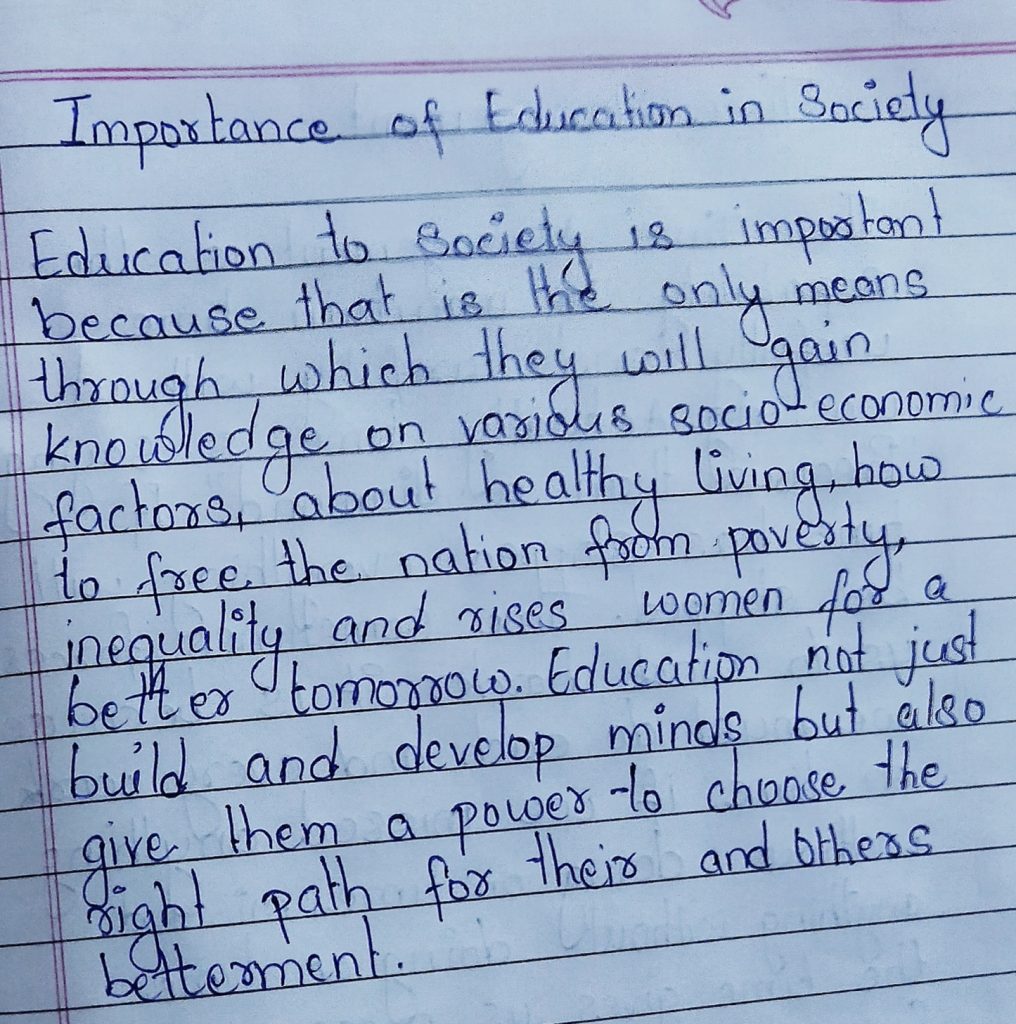 Importance of Education in Society
Education to Society is important
because that is the only means
through which they will gain
knowledge on various socio-economic
factors, about healthy living, how
to free the nation from poverty,
inequality and rises women for a
better tomorrow. Education not just
build and develop minds but also
give them a power to choose the
right path for their and others
betterment.